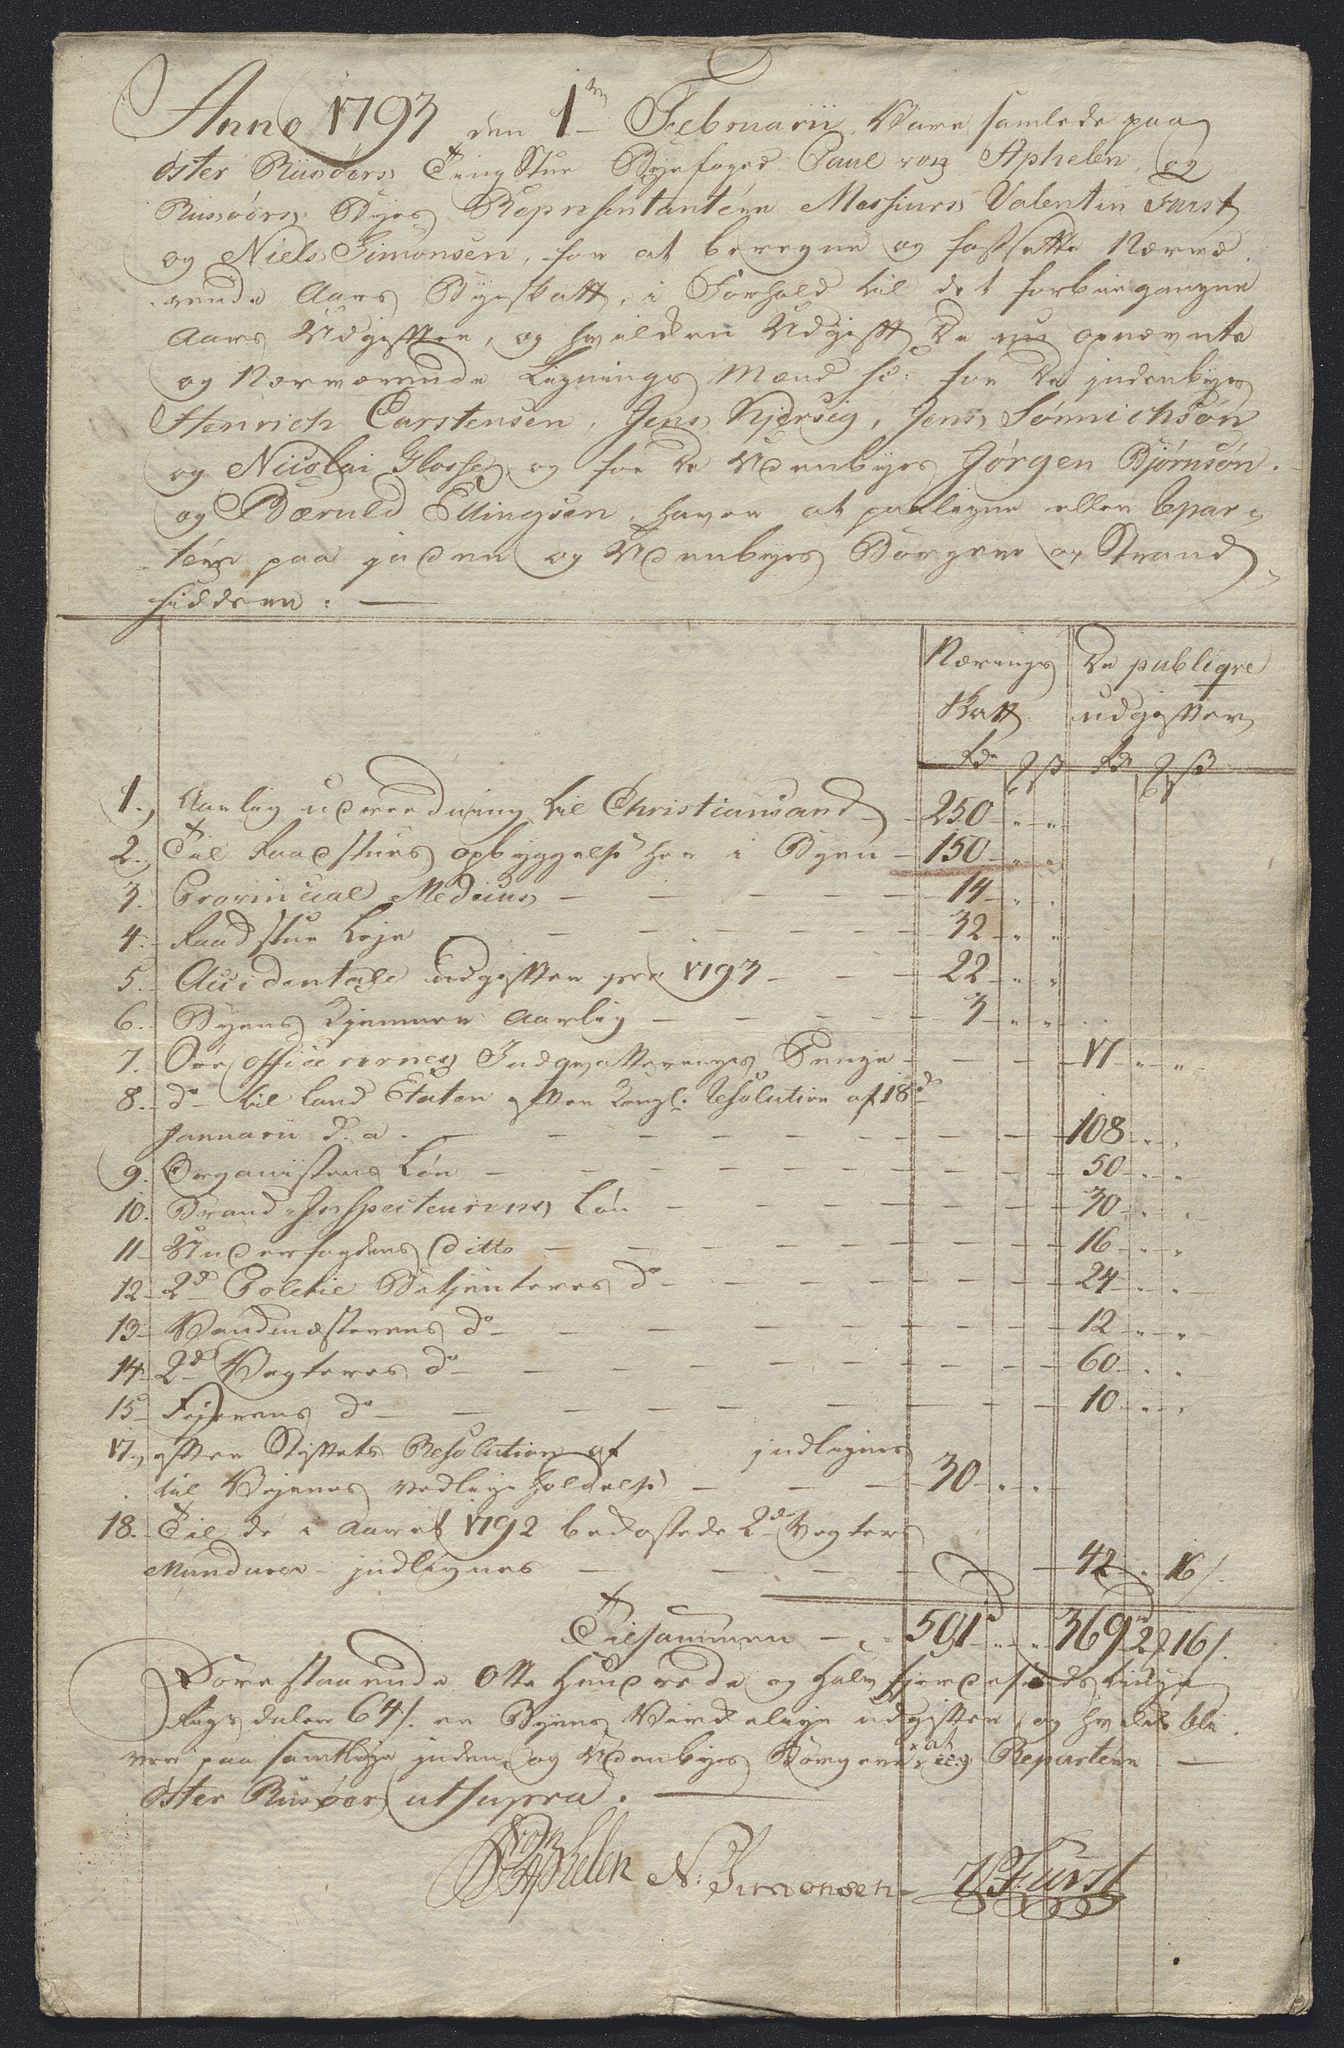 Anno 1793 den 1te Februarii Vare samlede paa
Öster Riisöers Ting Stue Byefoged Paul von Aphelen og
Riisöers Byes Repræsentantere Messiurs Valentin Furst
og Niels Simonsen, for at beregne og fastsætte Nærvæ
rende Aars Byeskatt, i Forhold til det forbiegangne
Aars Udgifter, og hvilken Udgift De nu opnævnte
og Nærværende Lignings Mænd for De indenbyes
Henrich Carstensen, Jens Kjersig, Jens Sønnichsøn
og Nicolai Glosse og for De Udenbyes Jørgen Bjørnsøn
og Bæruld Ellingsen, haver at paaligne eller repar
tere paa inden og Udenbyes Borgere og Strand
siddere:
Nærings De publiqve
Skatt udgifter
Rd ß Rd ß
1. Aarlig udreedning til Christiansand 250 " "
2. Til Raadstues opbyggelse her i Byen 150 " "
3. Provincial Medicus 14 " "
4. Raadstue Leje 32 " "
5. Accidentale udgifter pro 1793 22 " "
6. Byens Aarlig 3 " "
7. Over officerernes Indqvarterings Penge 17 " "
8. do til Land Etaten efter Kongl. Resolution af 18de
Januarii d. a. 108 " "
9. Organistens Løn 50 " "
10. Brand-Inspecteurens Løn 30 " "
11. Underfogdens ditto 16 " "
12. 2de Politie Betjenteres do 24 " "
13. Vandmesterens do 12 " "
14. 2de Vegteres do 60 " "
15. Fejerens do 10 " "
17. efter Stiftets Resolution af indlignes
til Vejenes vedligeholdelse 30 " "
18. Til de i Aaret 1792 bekostede 2de Vegters
Mundurer indlignes 42 " 16/
Tilsammen 501d " " 369d 2 16/.
Forestaaende Otte Hundrede og halv fierdesindstiuge
Rigsdaler 64/. er Byens Virkelige udgifter, og hvilke bli
ver paa samtlige inden og Udenbyes Borgere at Repartere
Öster Riisöer ut supra.
P v Aphelen N: Simonsen V. Furst